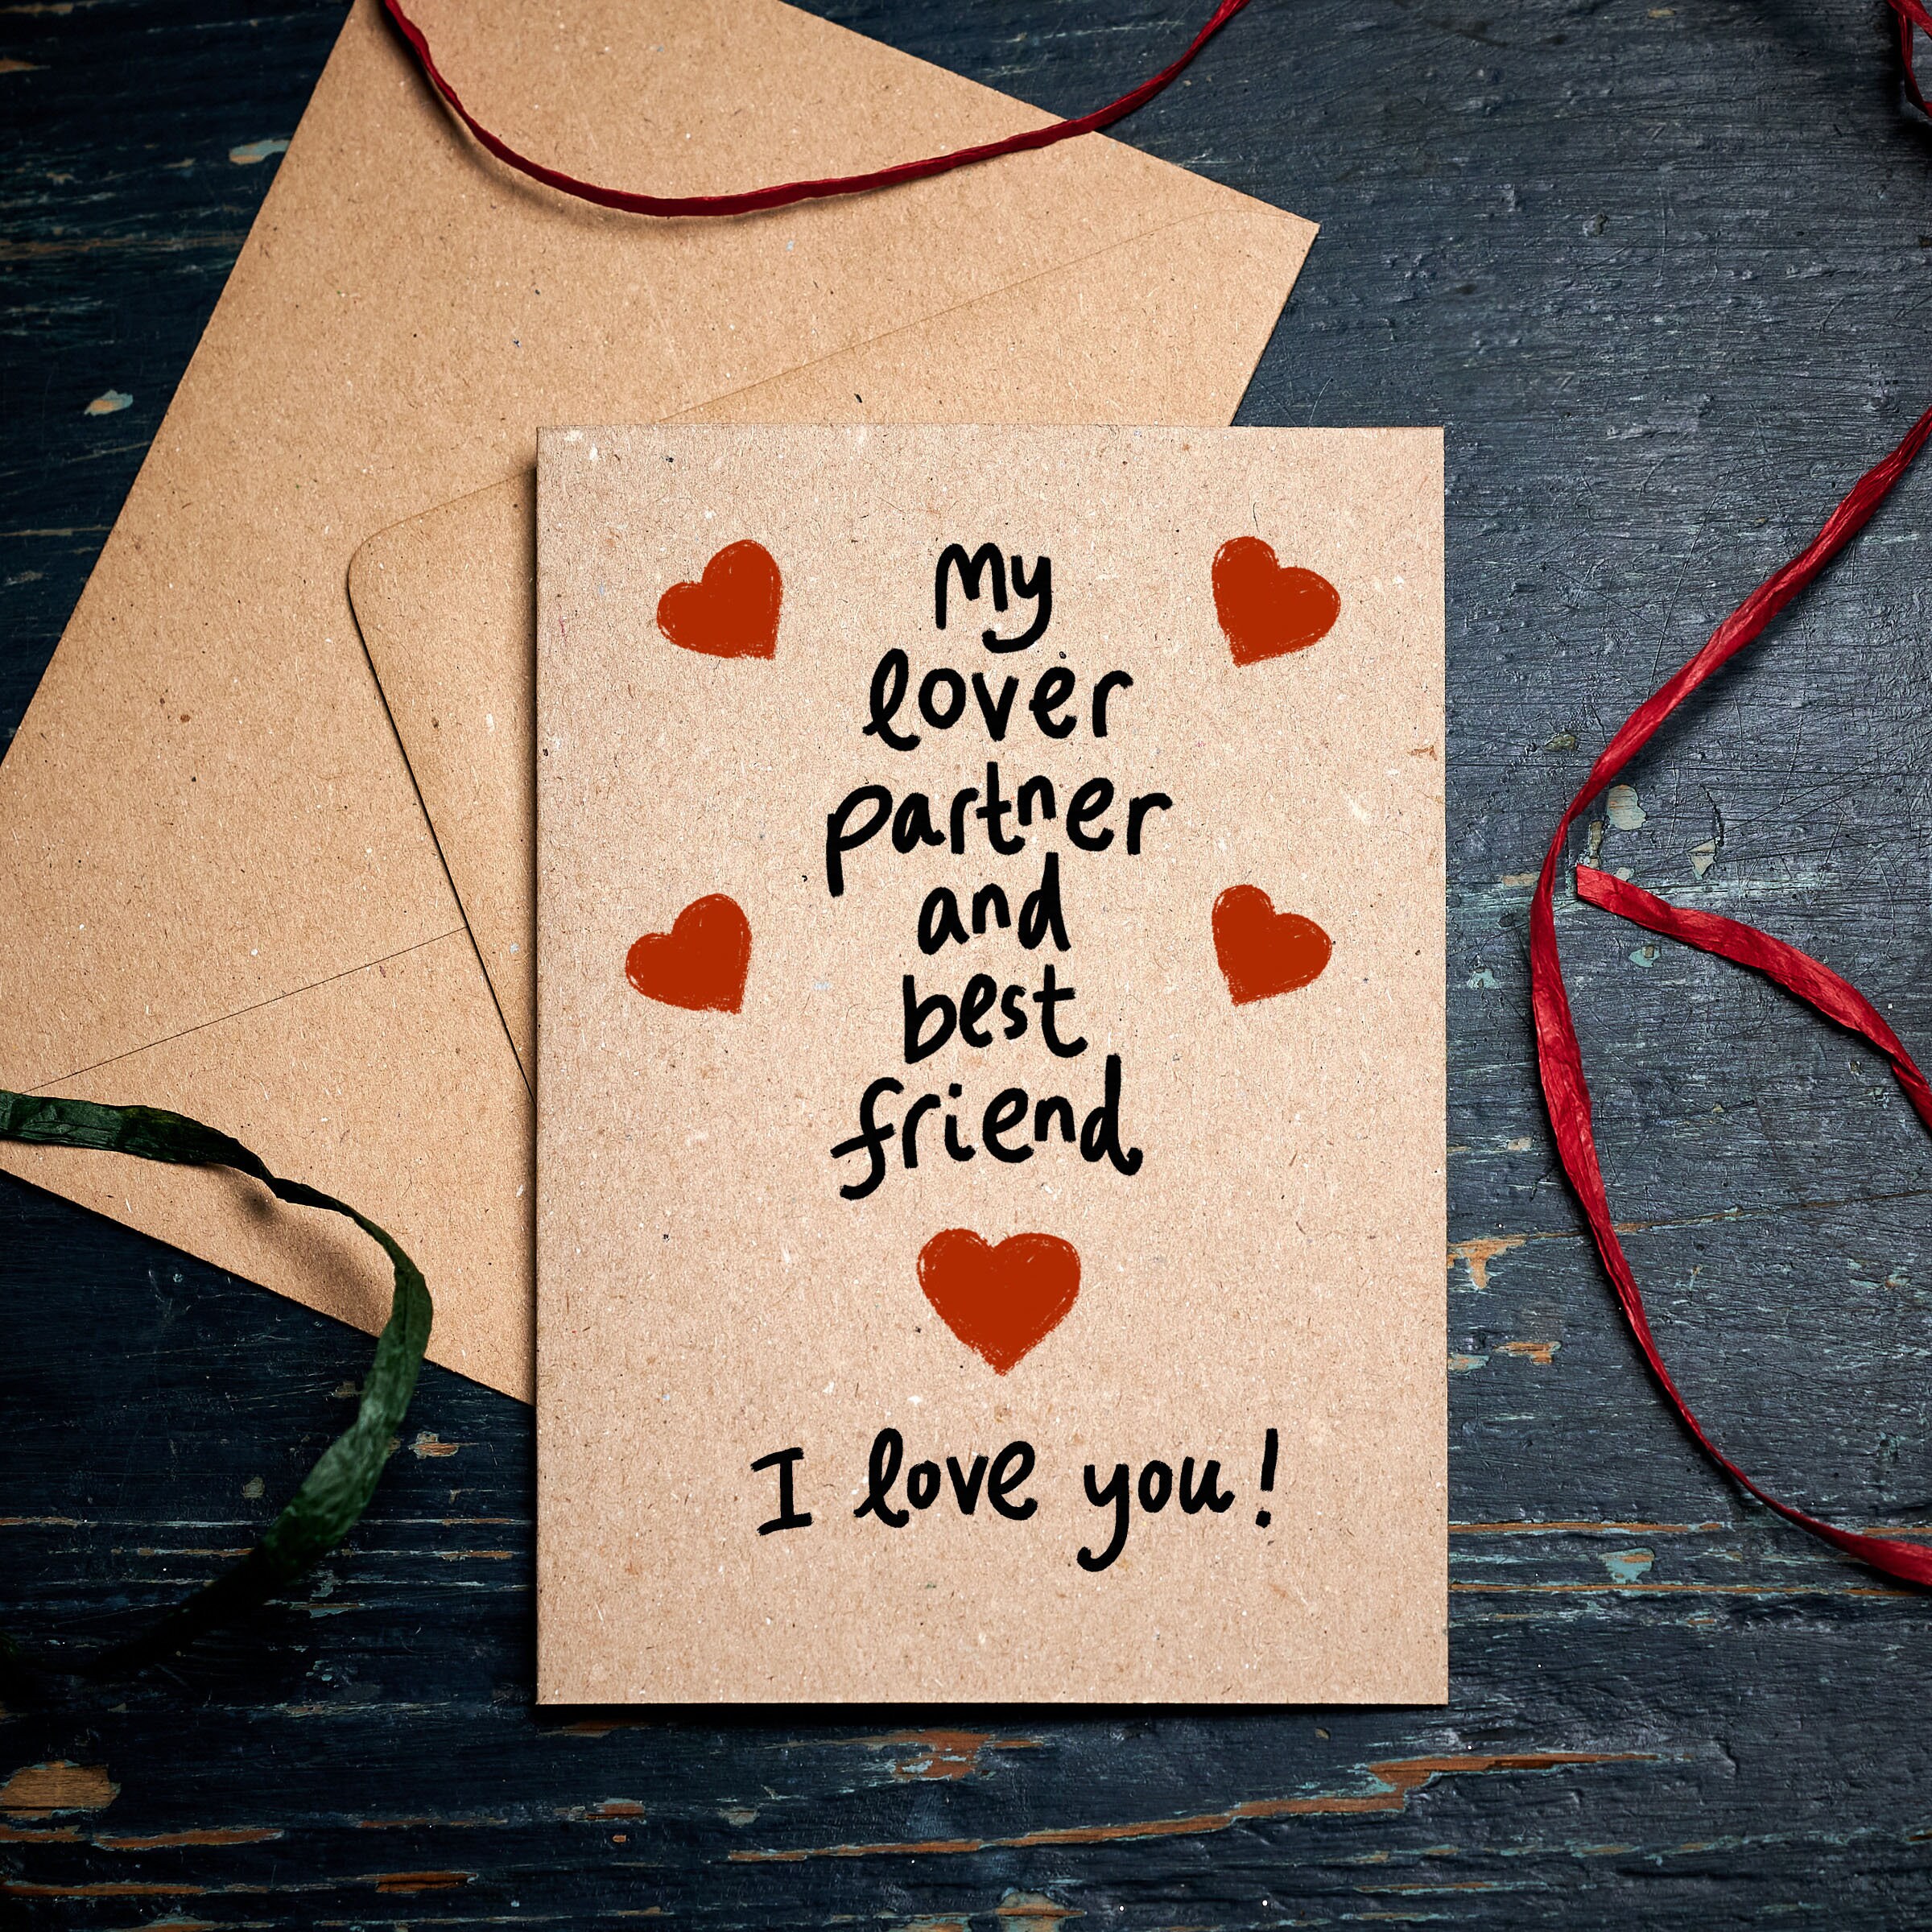 My
lover
partner
and
best
friend
I love you!